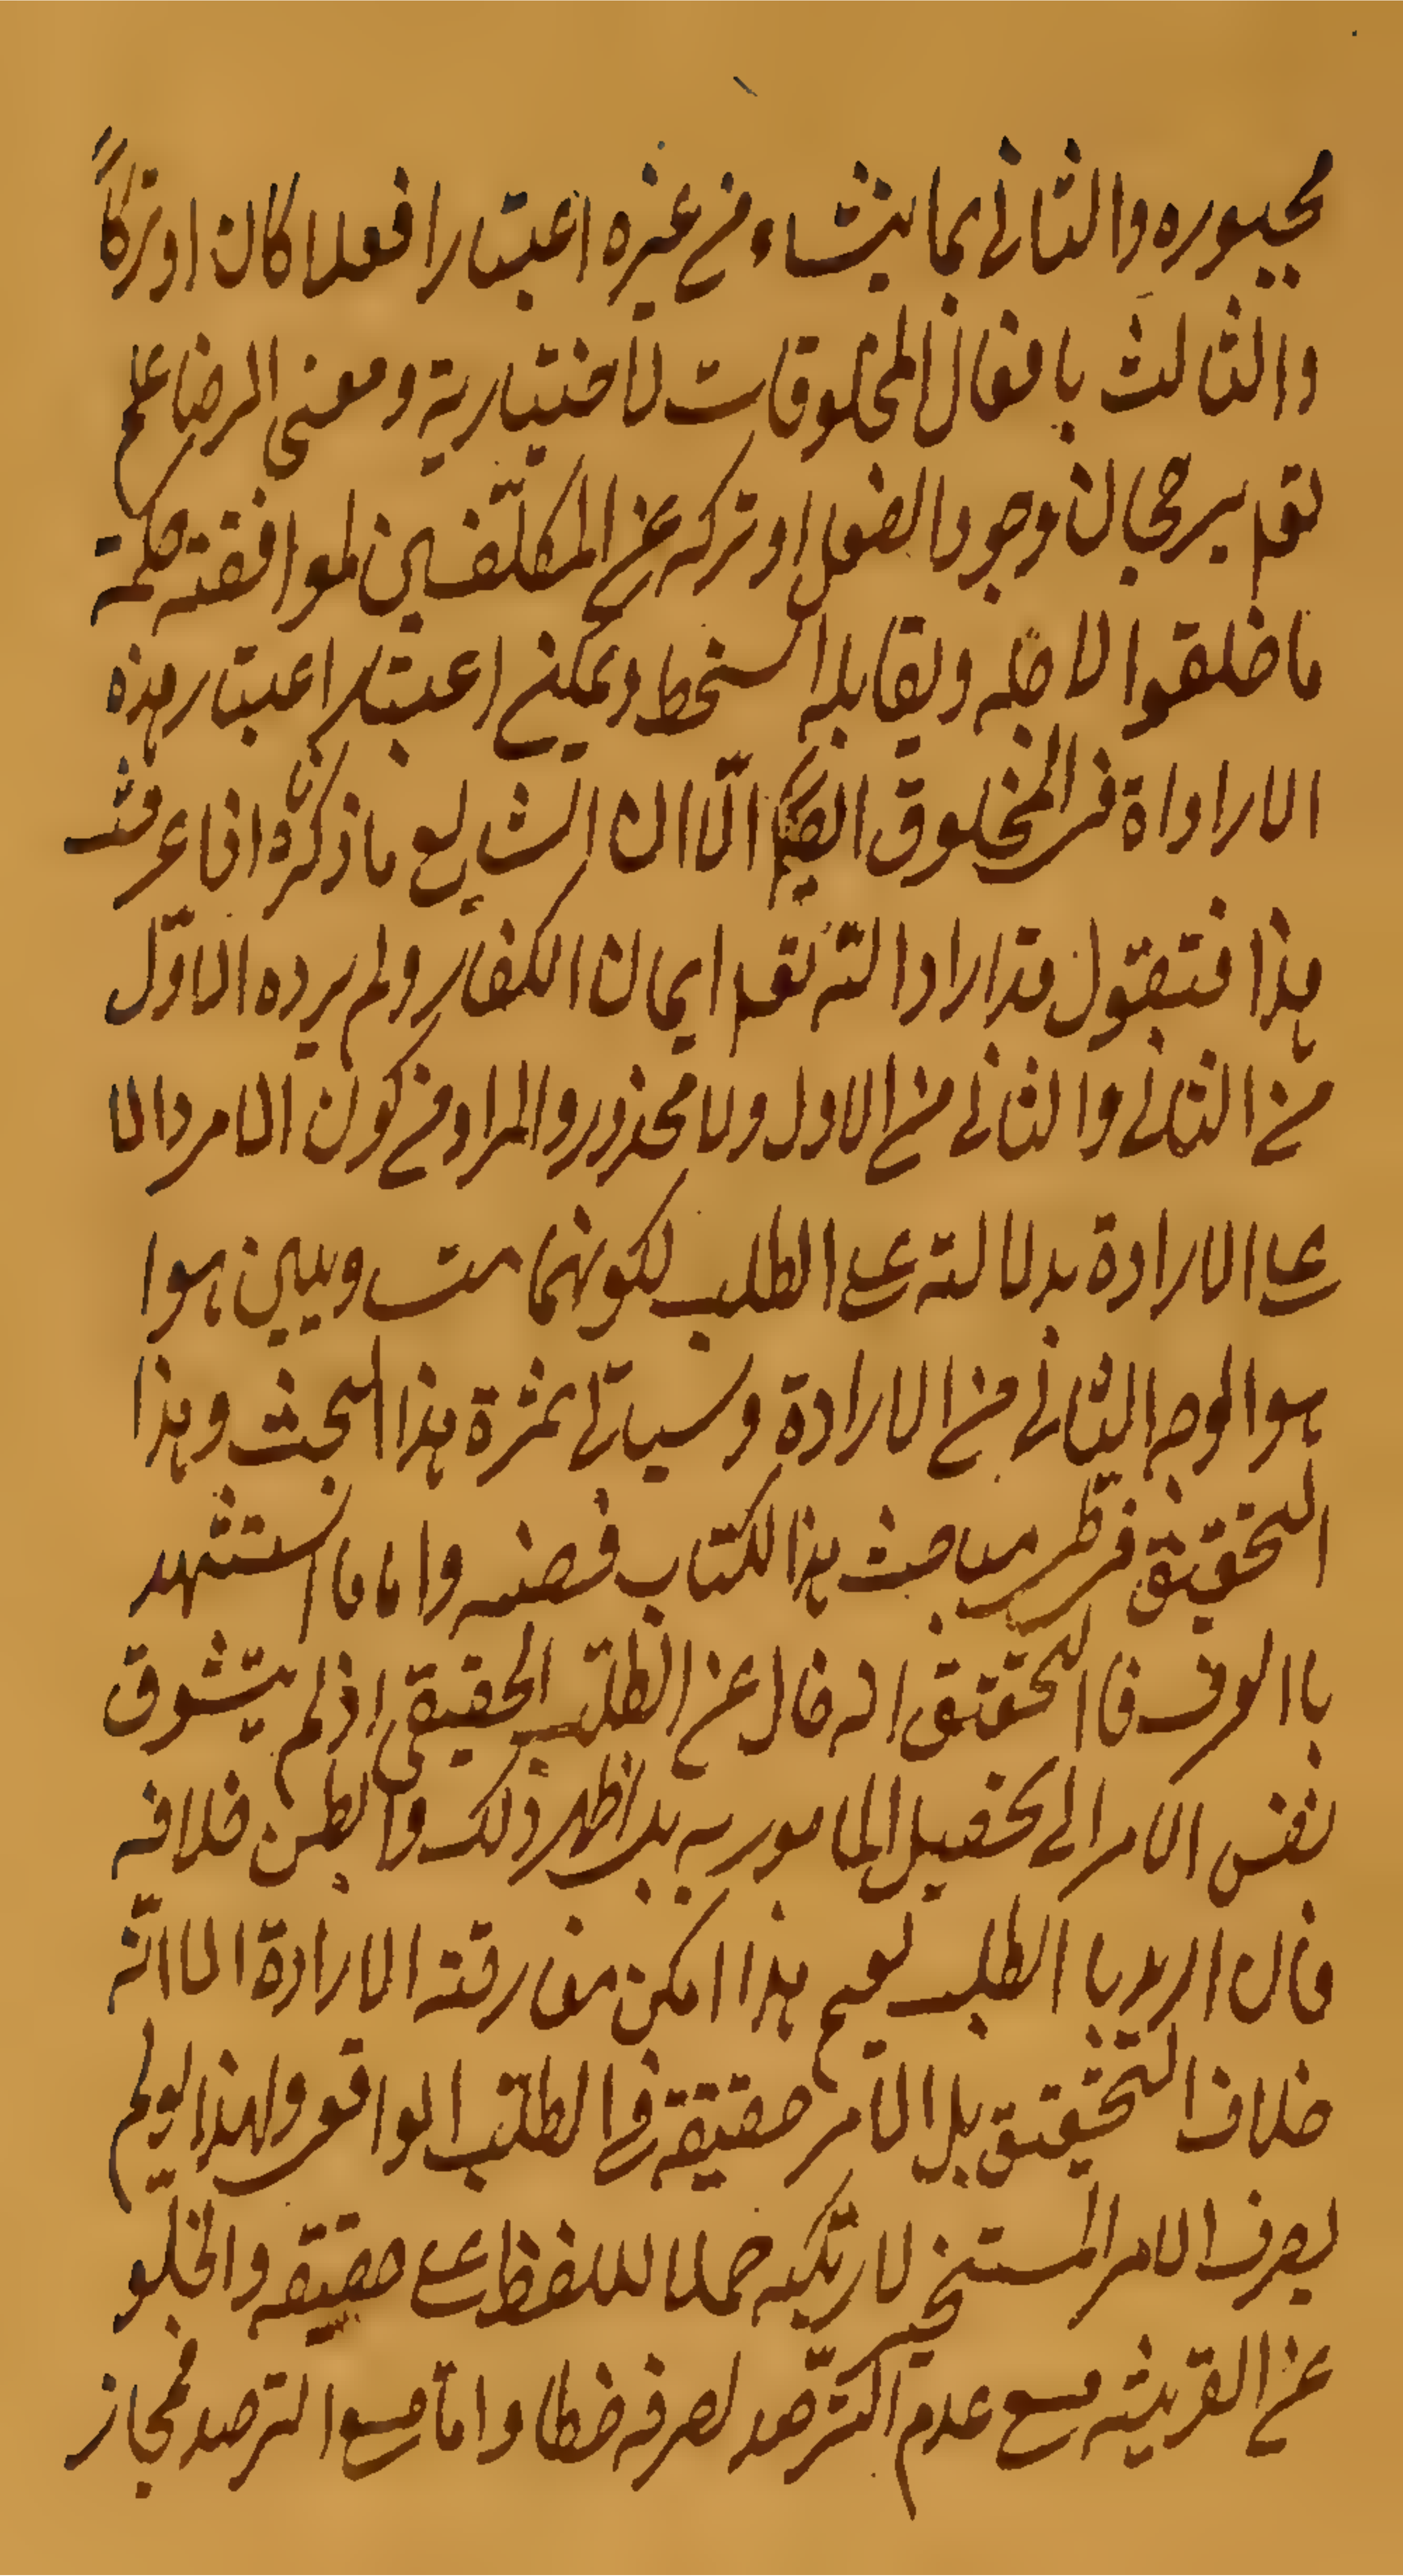 مجبوره والثانی بما یشاء من غیره اعتبارا فعلا کان او ترکاً
والثالث بافعال المخلوقات لاختیاریة ومعنی الرضا علم
تعم یرجحان وجود الفعل او ترکه عن المکلّفین لموافقته حکمة
ما خلقوا لاجله ویقابله السخط ویمکن اعتبار اعتبار هذه
الارادة فی المخلوق ایضا الّا ان الشایع ما ذکرنا اذا عرفت
هذا فتقول قد اراد الله تعم ایمان الکفار ولم یرده الاوّل
من الثانی والثانی من الاول ولا محذور والمراد من کون الامر دالا
علی الارادة بدلالته علی الطلب لکونهما متساویین هوا
هو الوجه الثانی من الارادة وسیاتی ثمرة هذا البحث وهذا
التحقیق فی نظر مباحث هذا الکتاب فصنه واما ما استشهد
باالوف فاالتحقیق انه خال عن الطلب الحقیقی اذ لم یتشوق
نفس الامر الی تحصیل المامور به بل اظهر ذلک وابطن خلافه
فان ارید باالطلب هذا امکن مفارقته الارادة الا انّه
خلاف التحقیق بل الامر حقیقة فی الطلب الواقعی ولهذا لو لم
یصرف الامر المستخیر لارتکبه حملا للفظ علی حقیقه والخلو
عن القرینه مع عدم الترصد لصرفه خطا واما مع الترصد فمجاز